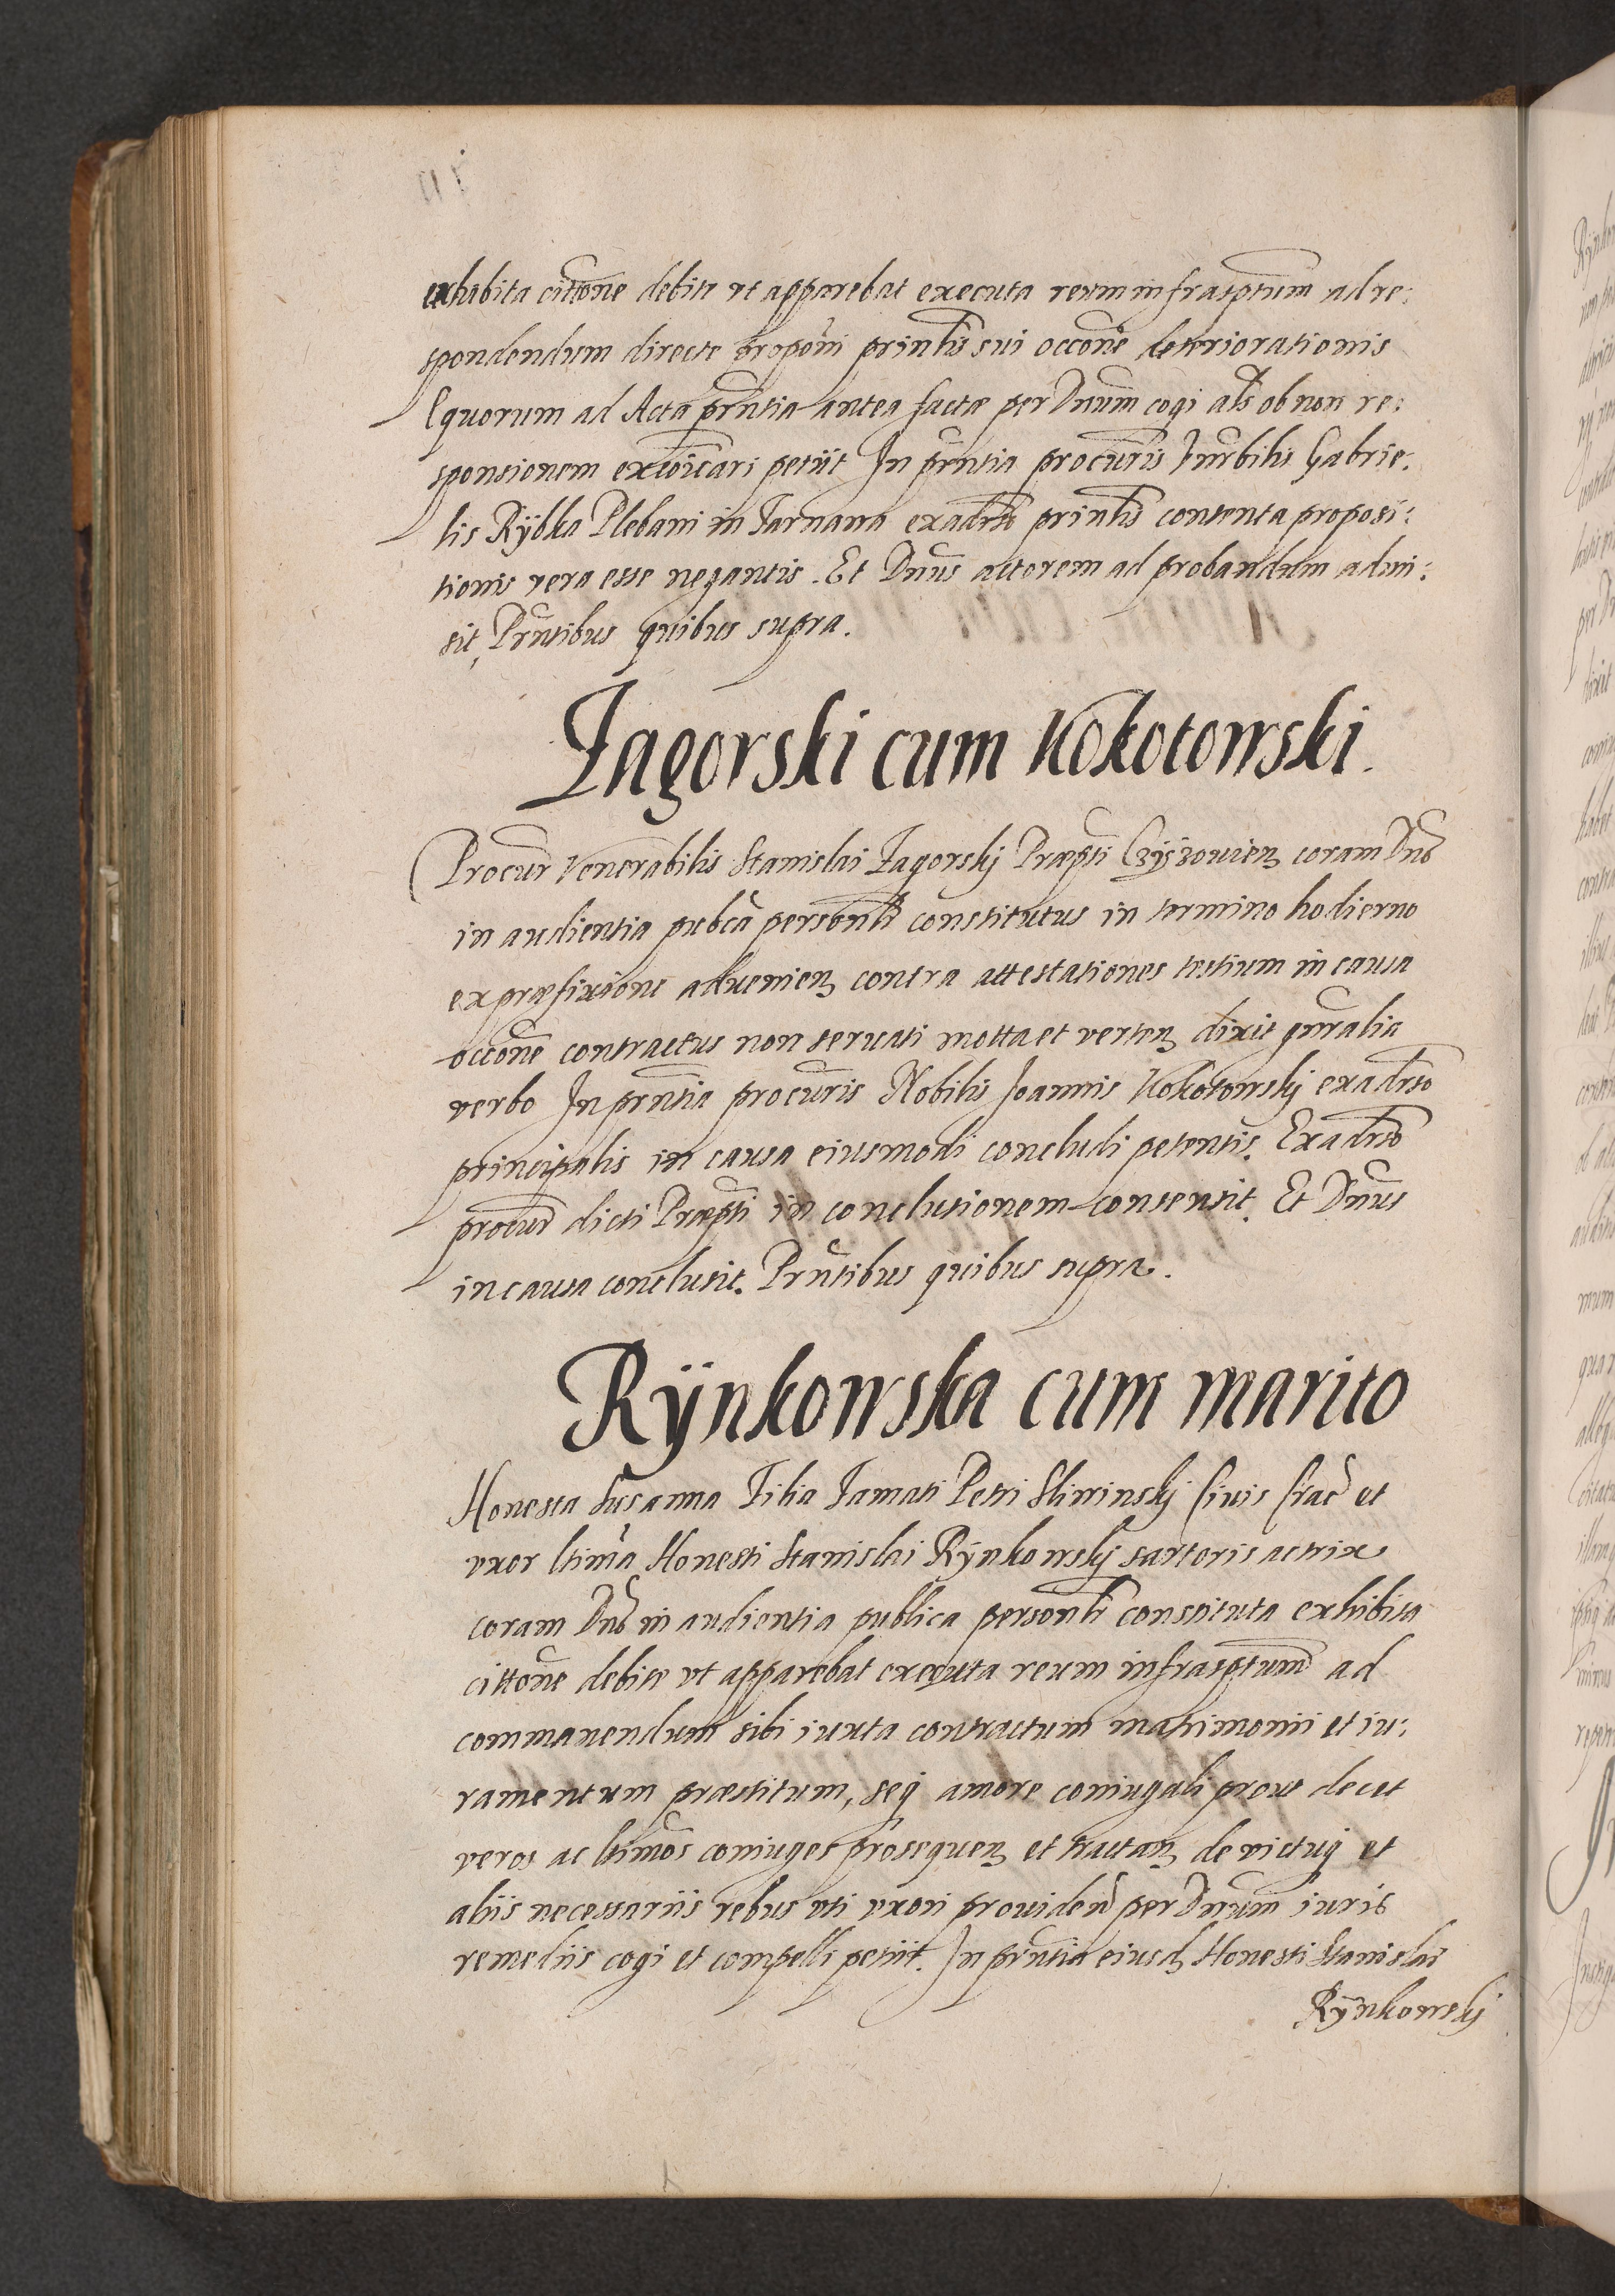 exhibita cittone debite vt apparebat executa reum infrasptum ad re:
spondendum directe proponi prinlis sui occone deteriorationis
equorum ad Acta prntia antea factae per Dnum cogi als ob non re:
sponsionem excoicari petiit In prntia procuris Honorabilis Gabrie:
lis Rÿbka Plebani in Tarnawa exadrso prinlis contenta proposi:
tionis vera esse negantis. Et Dnus actorem ad probandum admi:
sit, Prntibus quibus supra.
Zagorski cum Kokotowski.
Procur Venerabilis Stanislai Zagorskj Praepti Czÿzowien coram Dno
in audientia pubca personlr constitutus in termino hodierno
ex praefixione adueniens contra attestationes testium in causa
occone contractus non seruati motta et verten dixit gnralia
verbo In prntia procuris Nobilis Joannis Kokotowskj exadrso
principalis in causa eiusmodi concludi petentis. Exadrso
procur dicti Praepti in conclusionem consensit. Et Dnus
in causa conclusit. Prntibus quibus supra.
Rÿnkowska cum marito
Honesta Susanna Filia Famati Petri Sliwinskj Ciuis Crac et
vxor ltima Honesti Stanislai Rÿnkowskj sartoris actrix
coram Dno in audientia publica personlr constituta exhibita
cittone debite vt apparebat executa reum infrasptum ad
commanendum sibi iuxta contractum matrimonii et iu:
ramentum praestitum, seq amore coniugali prout decet
veros ac ltimos coniuges prosequen et tractan de victuq et
aliis necessariis rebus vti vxori prouiden per Dnum iuris
remediis cogi et compelli petiit. In prntia eiusd Honesti Stanislai
Rÿnkowskj